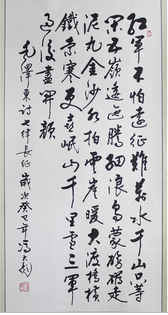 红军不怕远征难万水千山只等
闲五岭逶迤腾细浪乌蒙磅礴走
泥丸金沙水拍云崖暖大渡桥横
铁索寒更喜岷山千里雪三军
过后尽开颜
毛泽东诗七律长征 岁次癸巳年冯大彪